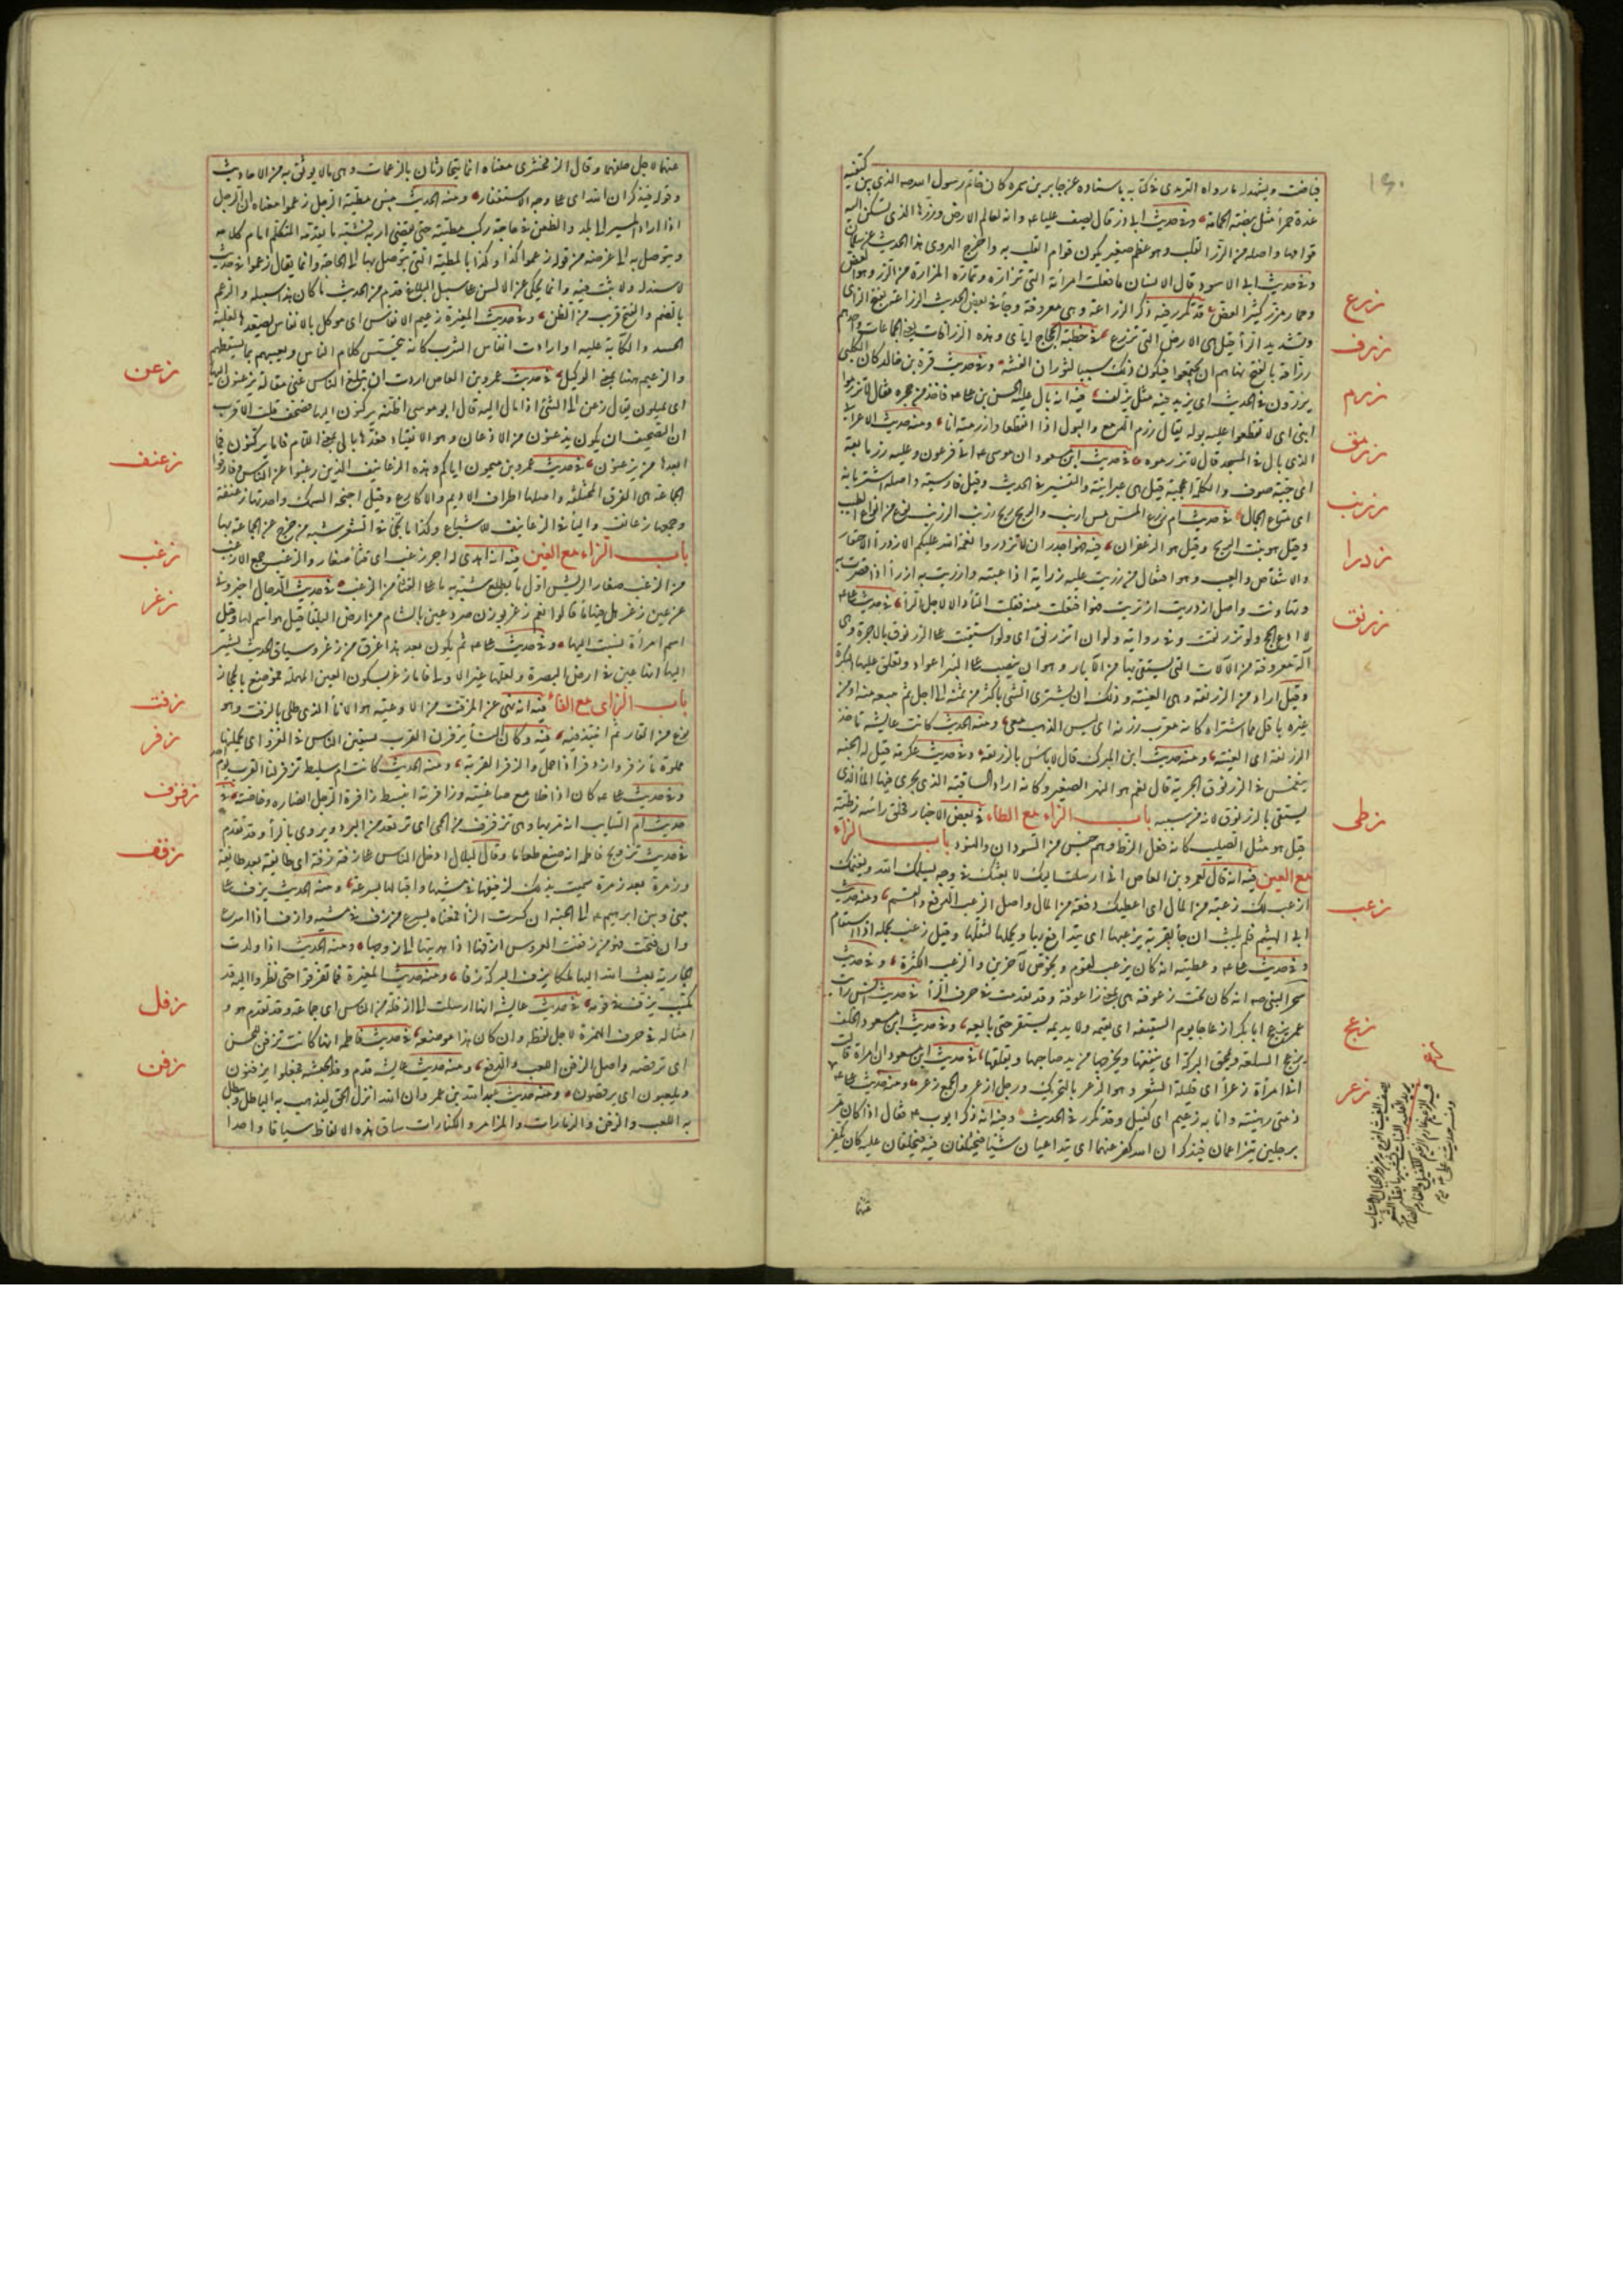 ١٦٠
فيافث ويشهد له ما رواه الترمذي في كتابه باسناده عن جابر بن سمرة كان خاتم رسول الله صه الذي بين كتفيه
غدة حمرأ مثل بيضة الحمامة وفي حديث ابي ذر قال يصف عليا عه وانه لعالم الارض وزرها الذي تسكن اليه
قوامها واصله من الزر القلب وهو عظم صغير يكون قوام القلب به واخرج الهروي هذا الحديث عن سلمان
وفي حديث ابي الاسود قال لانسان ما فعلت امرأته التي تزاره وتمازه المزارة من الزر وهو العض
وحمار مزر كثير العض قد تكرر فيه ذكر الزراعة وهي معروفة وجأ في بعض الحديث الزراعة بفتح الزاى
وتشديد الرأ قيل هي الارض التي تزرع في خطبة الحجاج اياي وهذه الزرافات يعني الجماعات واحدهم
زرافة بالفتح نهاهم ان يجتمعوا فيكون ذلك سببا لثوران الفتنة وفي حديث قرة بن خالد كان الكلبي
يزرف في الحديث اي يزيد فيه مثل يزلف فيه انه بال عليه الحسن بن علي عه فاخذ من حجره فقال لا تزرموا
ابني اي لا تقطعوا عليه بوله يقال زرم الدمع والبول اذا انقطعا وازرمته انا ومنه حديث الاعرابي
الذي بال في المسجد قال لا تزرموه في حديث ابن مسعود ان موسى عه اتى فرعون وعليه زرمانقة
اي جبة صوف والكلمة اعجمية قيل هي عبرانية والتفسير في الحديث وقيل فارسية واصله اشتربانه
اي متاع الجمال في حديث ام زرع المس مس ارنب والريح ريح زرنب الزرنب نوع من انواع الطيب
وقيل هو نبت الريح وقيل هو الزعفران فيه فهو اجدر ان لا تزدروا نعمة الله عليكم الازدرأ الاحتقار
والانتقاص والعيب وهو افتعال من زريت عليه زراية اذا عبته وازريت به ازرأ اذا قصرت به
وتهاونت واصل ازدريت ازتريت وهو افتعلت منه فقلبت التأ دالا لاجل الزأ في حديث علي عه
لا ادع الحج ولو تزرنقت وفي رواية ولو ان اتزرنق اي ولو استقيت على الزرنوق بالاجرة وهي
آلة معروفة من الآلات التي يستقى بها من الآبار وهو ان ينصب على البئر اعواد وتعلق عليها البكرة
وقيل اراد من الزرنقة وهي العينة وذلك ان يشتري الشئ باكثر من ثمنه الى اجل ثم يبيعه منه او من
غيره باقل مما اشتراه كانه معرب زرنه اي ليس الذهب معي ومنه الحديث كانت عايشة تاخذ
الزرنقة اي العينة ومنه حديث ابن المبارك قال لا بأس بالزرنقة وفي حديث عكرمة قيل له الجنب
ينغمس في الزرنوق اتجزيه قال نعم هو النهر الصغير وكانه اراد الساقية التي يجري فيها المأ الذي
يستقى بالزرنوق لانه من سببه باب الزاء مع الطاء في بعض الاخبار فحلق رأسه زطية
قيل هو مثل الصليب كانه فعل الزط وهم جنس من السودان والهنود باب الزاء
مع العين فيه انه قال لعمرو بن العاص اني ارسلت اليك لابعثك في وجه يسلمك الله ويغنمك
وازعب لك زعبة من المال اي اعطيك دفعة من المال واصل الزعب الدفع والقسم ومنه حديث
ابي الهيثم فلم يلبث ان جأ بقربة يزعبها اي يتدافع بها ويحملها لثقلها وقيل زعب بحمله اذا استقام
وفي حديث علي عه وعطيته انه كان يزعب لقوم ويخوص لآخرين والزعب الكثرة وفي حديث
سحر النبي صه انه كان تحت زعوفة هي بمعنى زاعوفة وقد تقدمت في حرف الرأ في حديث انس رايت
عمر يزعج ابا بكر ازعاجا يوم السقيفة اي يقيمه ولا يدعه يستقر حتى بايعه وفي حديث ابن مسعود الحلف
يزعج السلعة ويمحق البركة اي ينفقها ويخرجها من يد صاحبها ويقلقها في حديث ابن مسعود ان امراة قالت
اني امرأة زعرأ اي قليلة الشعر وهو الزعر بالتحريك ورجل ازعر والجمع زعر ومنه حديث علي عه
ذمتي رهينة وانا به زعيم اي كفيل وقد تكرر في الحديث وفيه انه ذكر ايوب عه فقال اذا كان مر
برجلين يتزاعمان فيذكران الله كفر عنهما اي يتداعيان شيئا فيختلفان فيه فيحلفان عليه كان يكفر
عنهما
زرع
زرف
زرم
زرمق
زرنب
زدرا
زرنق
زطى
زعب
زعج
زعر
زعم
عنهما لاجل حلفهما وقال الزمخشري معناه انهما يتحادثان بالزعمات وهي ما لا يوثق به من الاحاديث
وقوله فيذكران الله اي على وجه الاستغفار ومنه الحديث بئس مطية الرجل زعموا معناه ان الرجل
اذا اراد المسير الى بلد والظعن في حاجة ركب مطيته حتى يقضي اربه فشبه ما يقدمه المتكلم امام كلامه
ويتوصل به الى غرضه من قوله زعموا كذا وكذا بالمطية التي يتوصل بها الى الحاجة وانما يقال زعموا في حديث
لا سند له ولا ثبت فيه وانما يحكى عن الالسن على سبيل البلاغ فذم من الحديث ما كان هذا سبيله والزعم
بالضم والفتح قريب من الظن وفي حديث المغيرة زعيم الانفاس اي موكل بالانفاس يصعدها لغلبة
الحسد والكآبة عليه او ارادت انفاس الشرب كانه يتحسس كلام الناس ويعيبهم بما يسقطهم
والزعيم هنا بمعنى الوكيل في حديث عمرو بن العاص اردت ان تبلغ الناس عني مقالة يزعنون اليها
اي يميلون يقال زعن الى الشئ اذا مال اليه قال ابو موسى اظنه يركنون اليها فصحف قلت الاقرب
ان التصحيف ان يكون يذعنون من الاذعان وهو الانقياد فعداها بالى بمعنى اللام فاما يركنون فما
ابعدها من يزعنون في حديث عمرو بن ميمون اياكم وهذه الزعانيف الذين رغبوا عن الناس وفارقوا
الجماعة هي الفرق المختلفة واصلها اطراف الاديم والاكارع وقيل اجنحة السمك واحدتها زعنفة
وجمعها زعانف واليأ في الزعانيف للاشباع وكذا ما يجئ في الشعر شبه من خرج عن الجماعة بها
باب الزاء مع الغين فيه انه اهدى له اجر زغب اي قثأ صغار والزغب جمع الازغب
من الزغب صغار الريش اول ما يطلع شبه به ما على القثأ من الزغب في حديث الدجال اخبروني
عن عين زغر هل فيها مأ قالوا نعم زغر بوزن صرد عين بالشام من ارض البلقأ قيل هو اسم لها وقيل
اسم امرأة نسبت اليها وفي حديث علي عه ثم يكون بعد هذا غرق من زغر وسياق الحديث يشير
الى انها عين في ارض البصرة ولعلها غير الاولى فاما زعر بسكون العين المهملة فموضع بالحجاز
باب الزاى مع الفاء فيه انه نهى عن المزفت من الاوعية هو الانأ الذي طلي بالزفت وهو
نوع من القار ثم انتبذ فيه فيه وكان النسأ يزفرن القرب يسقين الناس في الغزو اي يحملنها
مملوة مأ زفر وازدفر اذا حمل والزفر القربة ومنه الحديث كانت ام سليط تزفر لنا القرب يوم احد
وفي حديث علي عه كان اذا خلا مع صاغيته وزافرته انبسط زافرة الرجل انصاره وخاصته في
حديث ام السايب انه مر بها وهي تزفزف من الحمى اي ترتعد من البرد ويروى بالرأ وقد تقدم
في حديث تزويج فاطمة انه صنع طعاما وقال لبلال ادخل الناس علي زفة زفة اي طائفة بعد طائفة
وزمرة بعد زمرة سميت بذلك لزفيفها في مشيها واقبالها بسرعة ومنه الحديث يزف علي
بيني وبين ابراهيم عه الى الجنة ان كسرت الزأ فمعناه يسرع من زف في مشيه وازف اذا اسرع
وان فتحت فهو من زففت العروس ازفها اذا اهديتها الى زوجها ومنه الحديث اذا ولدت
الجارية بعث الله اليها ملكا يزف البركة زفا ومنه حديث المغيرة فما تفرقوا حتى نظروا اليه قد
تكتب يزف في قومه في حديث عايشة انها ارسلت الى ازفلة من الناس اي جماعة وقد تقدم هو و
امثاله في حرف الهمزة لاجل لفظه وان كان هذا موضعه في حديث فاطمة انها كانت تزفن للحسن
اي ترقصه واصل الزفن اللعب والدفع ومنه حديث عايشة قدم وفد الحبشة فجعلوا يزفنون
ويلعبون اي يرقصون ومنه حديث عبد الله بن عمرو ان الله انزل الحق ليذهب به الباطل ويبطل
به اللعب والزفن والزمارات والمزاهر والكنارات ساق هذه الالفاظ سياقا واحدا
زعن
زعنف
زغب
زغر
زفت
زفر
زفزف
زفف
زفل
زفن